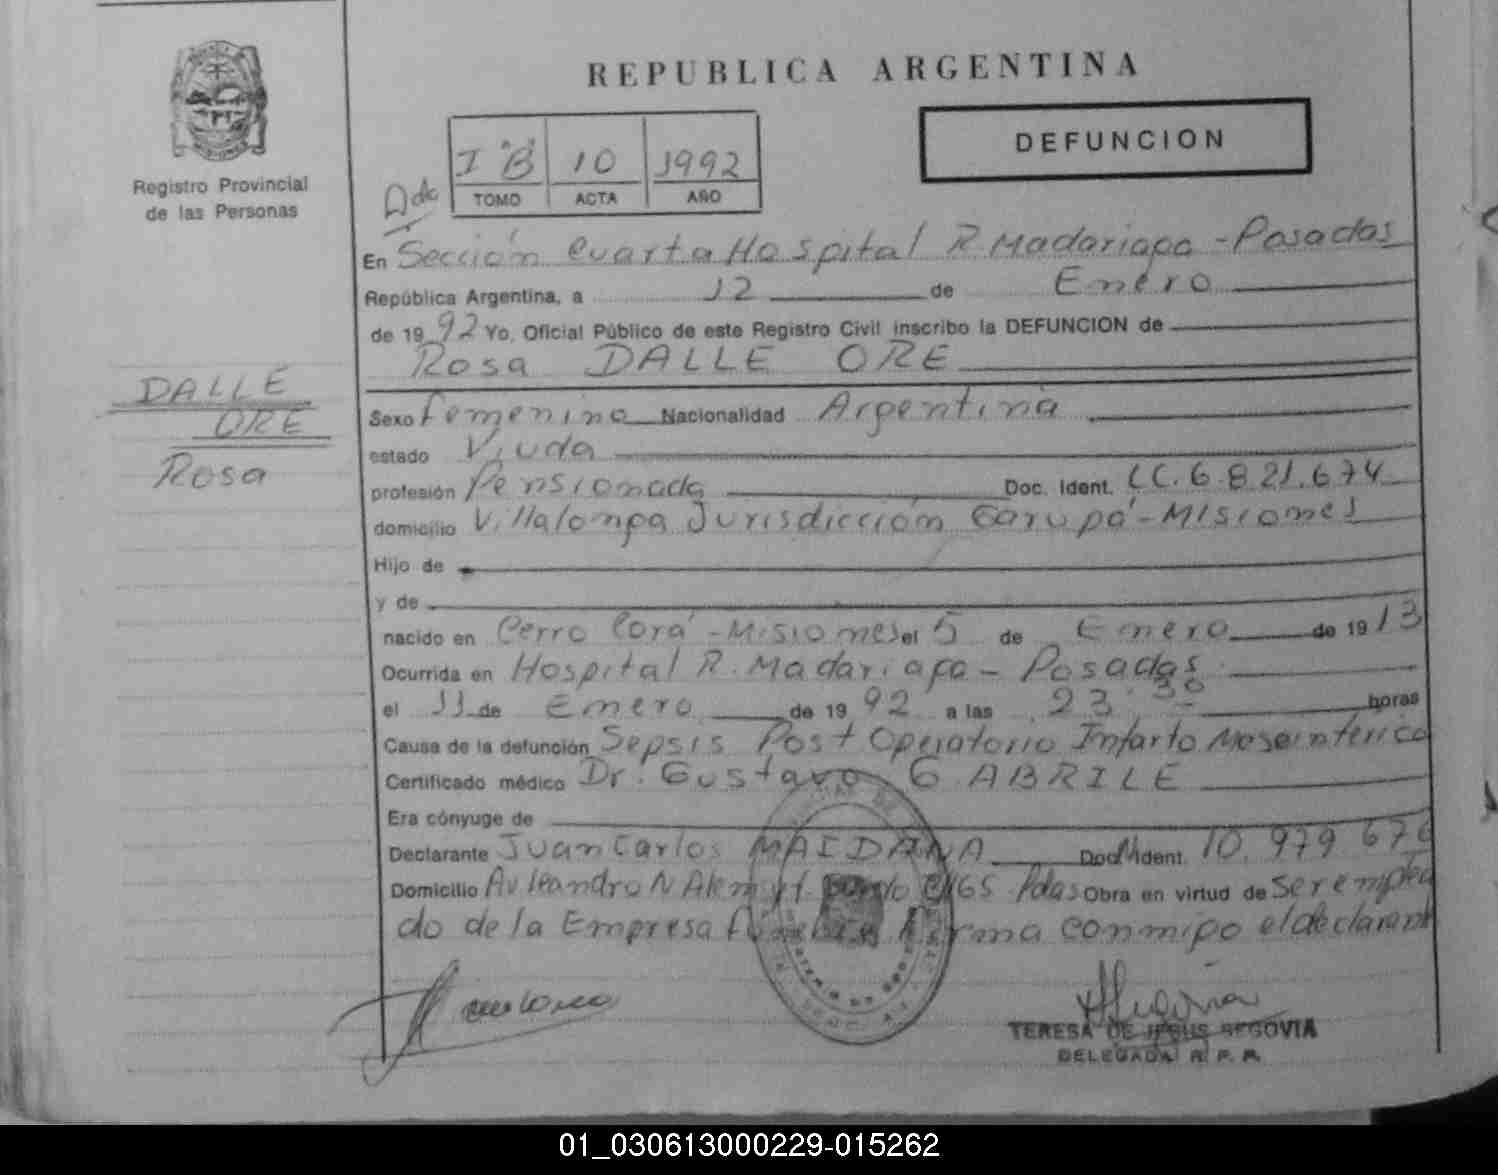 REPUBLICA ARGENTINA
Registro Provincial
de las Personas
I "B" 10 1992
TOMO ACTA AÑO
DEFUNCION
En Sección Cuarta Hospital R. Madariaga - Posadas
República Argentina, a 12 de Enero
de 1992 Yo, Oficial Público de este Registro Civil inscribo la DEFUNCION de
Rosa DALLE ORE
DALLE
ORE
Rosa
Sexo femenino Nacionalidad Argentina
estado Viuda
profesión Pensionada Doc. Ident. LC. 6.821.674
domicilio Villalonga Jurisdicción Garupá - Misiones
Hijo de
y de
nacido en Cerro Corá - Misiones el 5 de Enero de 1913
Ocurrida en Hospital R. Madariaga - Posadas
el 11 de Enero de 1992 a las 23 30 horas
Cause de la defunción Sepsis Post Operatorio Infarto Meseinterico
Certificado médico Dr. Gustavo G. ABRILE
Era cónyuge de
Declarante Juan Carlos MAIDANA Doc. Ident. 10.979.676
Domicilio Av Leandro N Alem y 8165 Pdas Obra en virtud de ser emplea
do de la Empresa firma conmigo el declarante
TERESA DE JESUS SEGOVIA
DELEGADA R. P. P.
01_030613000229-015262